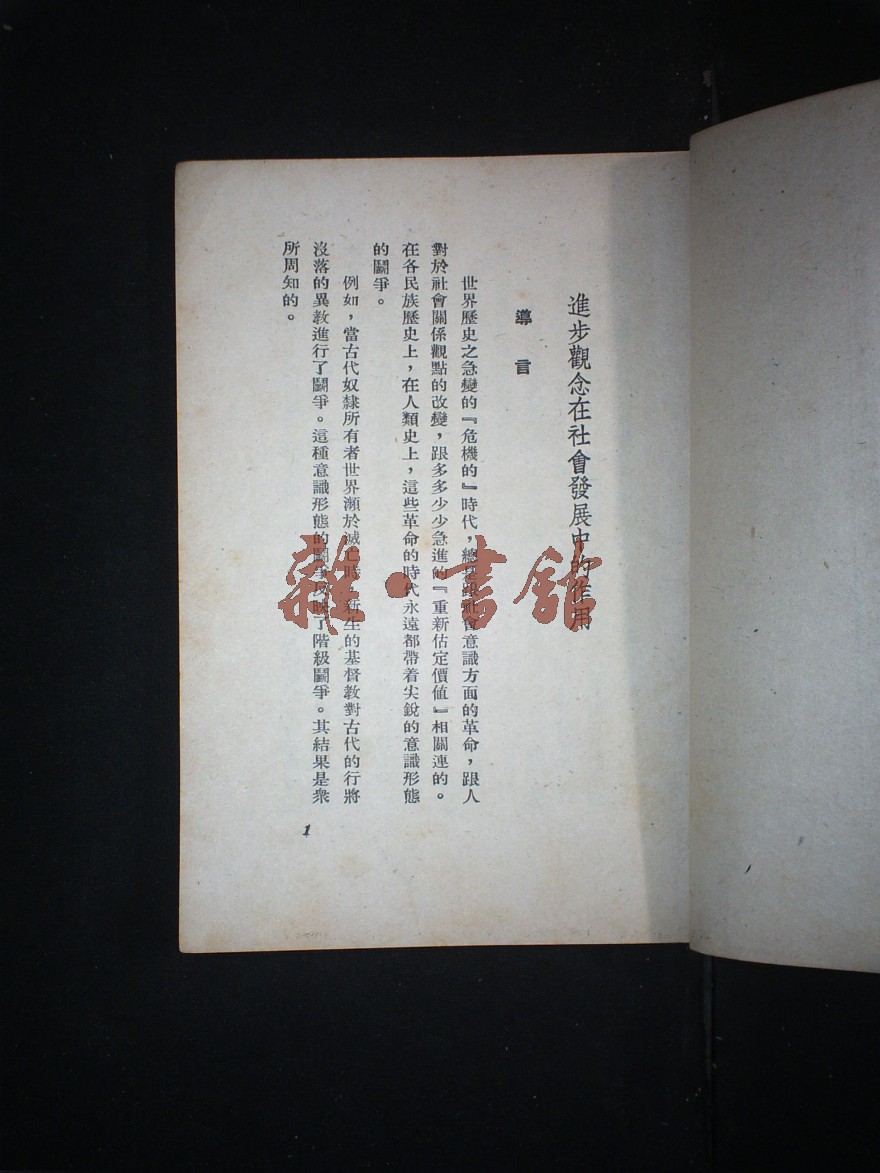 進步觀念在社會發展中的作用
導言
世界歷史之急變的『危機的』時代，總是跟社會意識方面的革命，跟人
對於社會關係觀點的改變，跟多多少少急進的『重新估定價值』相關連的。
在各民族歷史上，在人類史上，這些革命的時代永遠都帶着尖銳的意識形態
的鬭爭。
例如，當古代奴隸所有者世界瀕於滅亡時，新生的基督教對古代的行將
沒落的異教進行了鬭爭。這種意識形態的鬭爭反映了階級鬭爭。其結果是衆
所周知的。
1
雜·書館